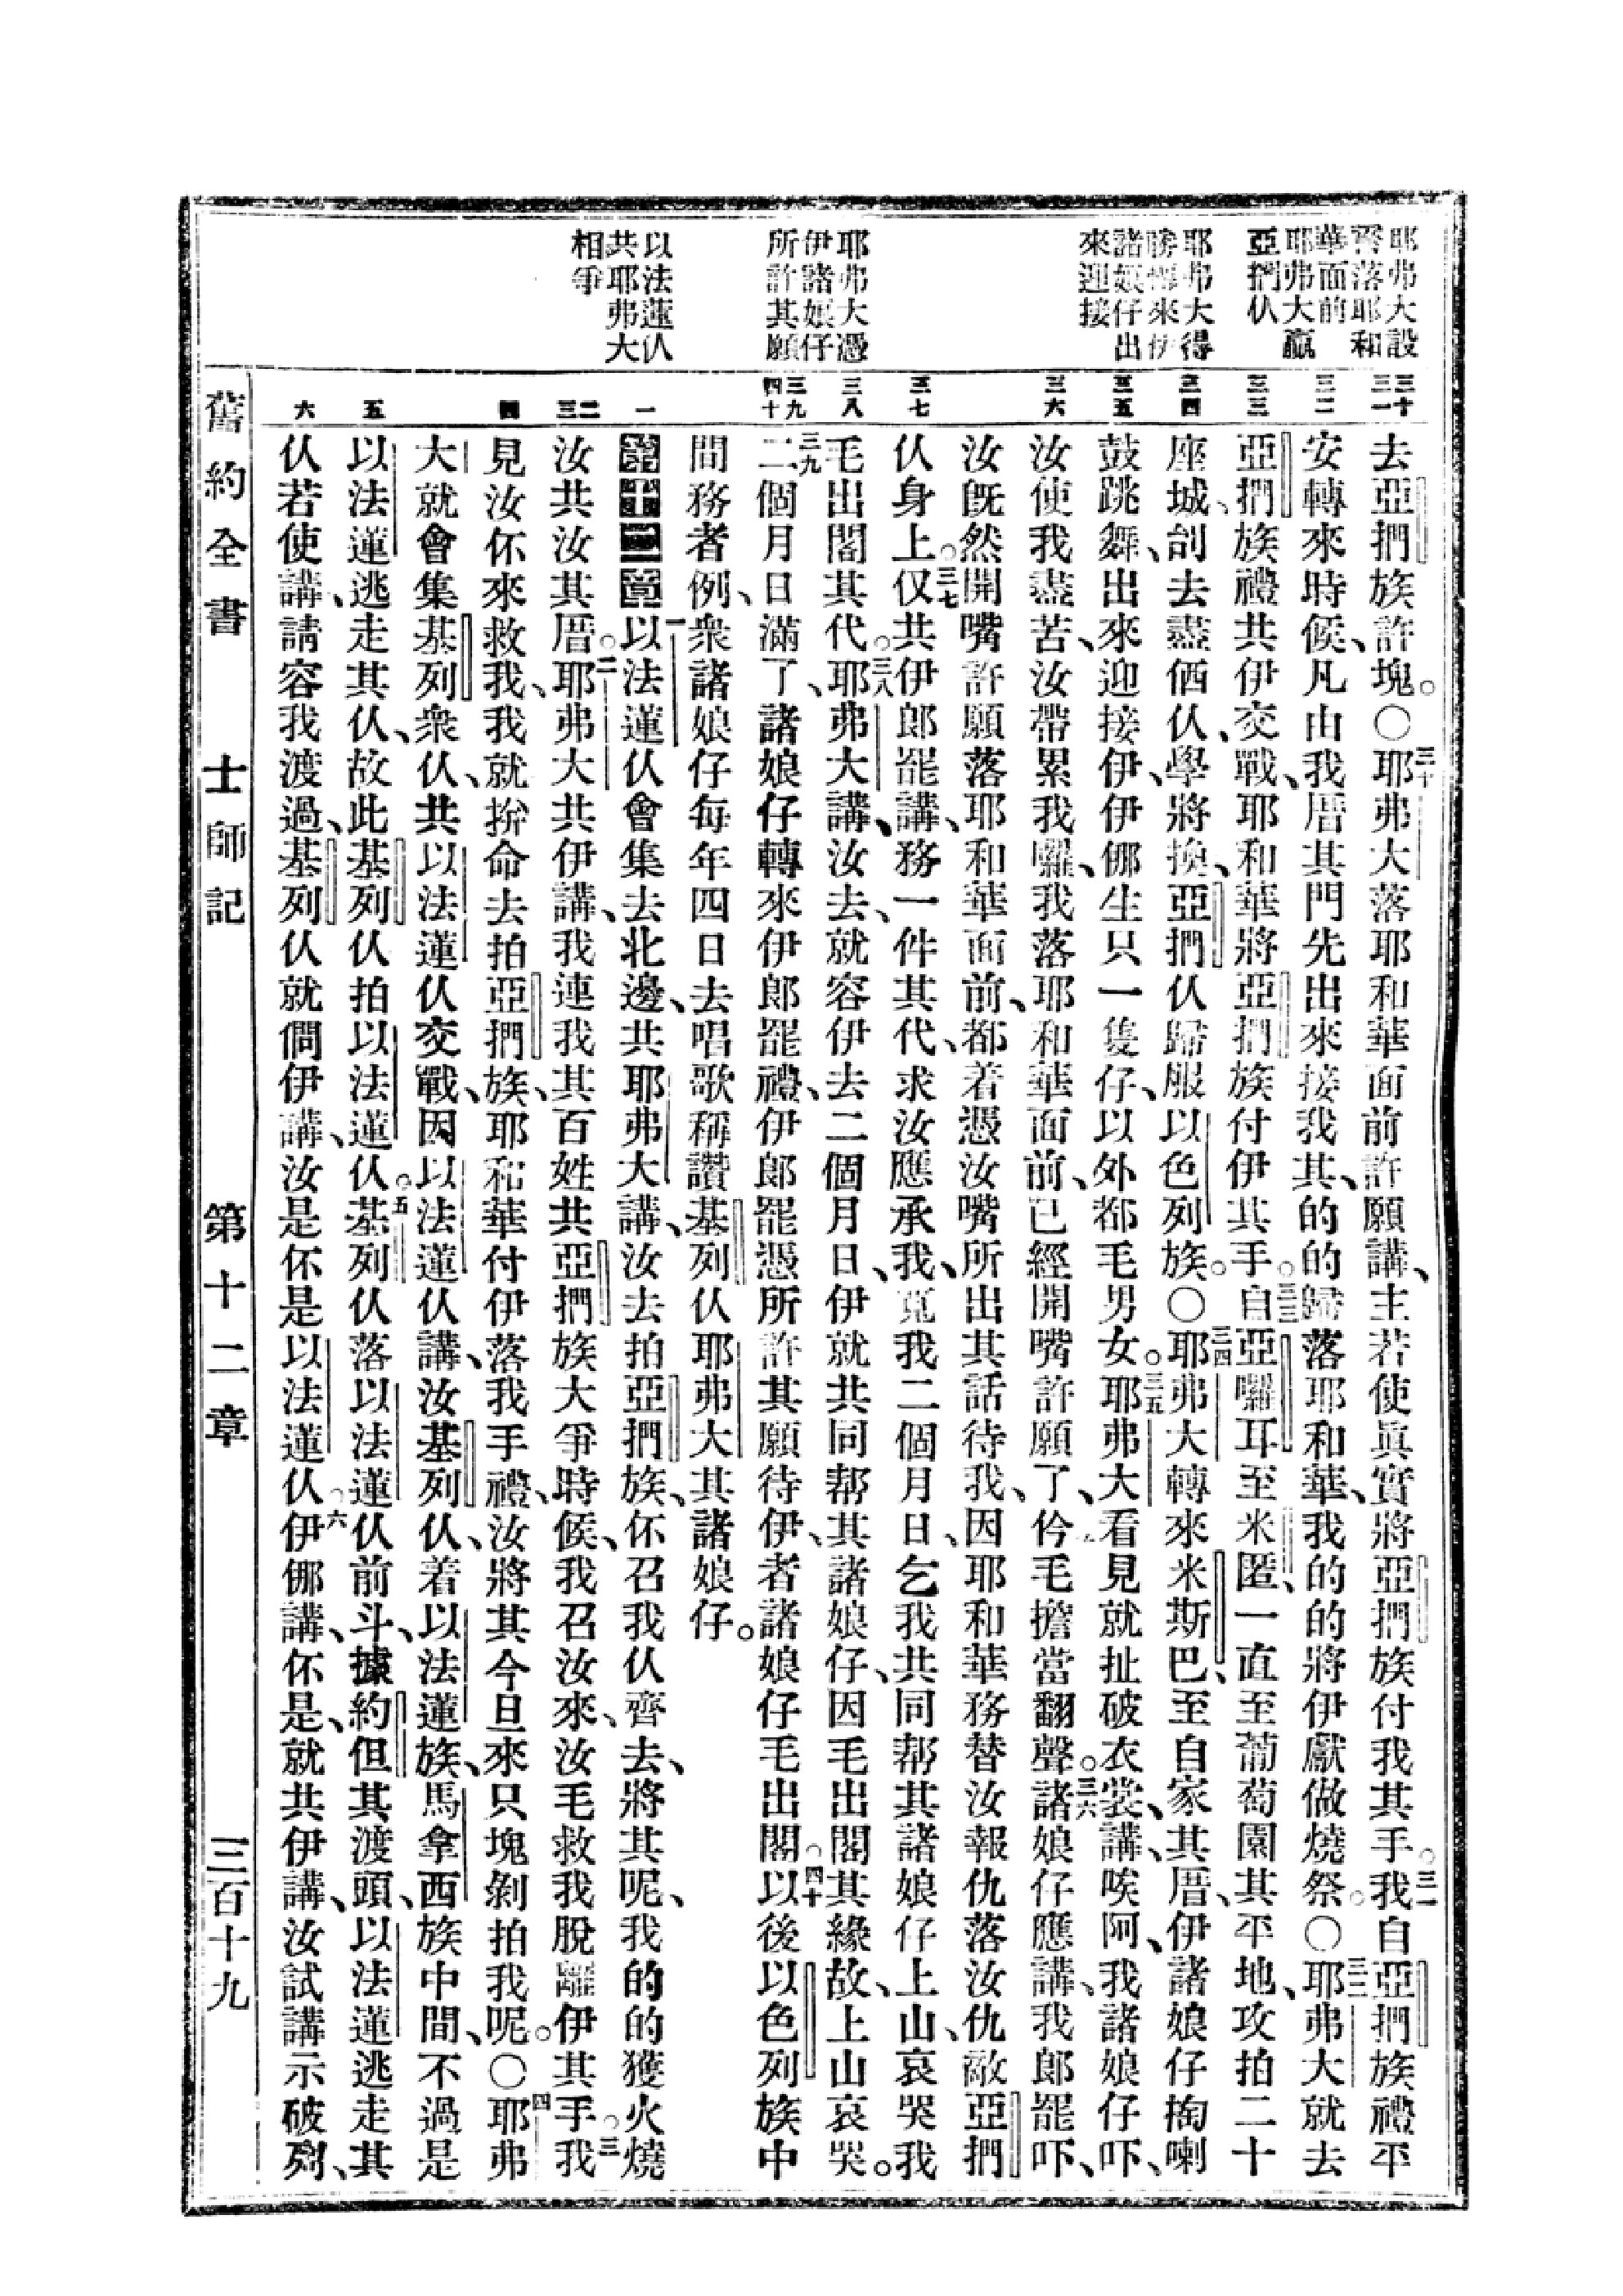 耶弗大設
誓落耶和
華面前
耶弗大贏
亞捫仈
耶弗大得
勝轉來伊
諸娘仔出
來迎接
耶弗大憑
伊諸娘仔
所許其願
以法蓮仈
共耶弗大
相爭
三十
三一
三二
三三
三四
三五
三六
三七
三八
三九
四十
一
二
三
四
五
六
去亞捫族許塊。〇三十耶弗大落耶和華面前許願講、主若使眞實將亞捫族付我其手。三一我自亞捫族禮平
安轉來時候、凡由我厝其門先出來接我其、的的歸落耶和華、我的的將伊獻做燒祭。〇三二耶弗大就去
亞捫族禮共伊交戰、耶和華將亞捫族付伊其手。三三自亞囉耳至米匿、一直至葡萄園其平地、攻拍二十
座城、刣去盡價仈、學將換、亞捫仈歸服以色列族。〇三四耶弗大轉來米斯巴、至自家其厝、伊諸娘仔掏喇
鼓跳舞、出來迎接伊、伊𠆧生只一隻仔、以外都毛男女。三五耶弗大看見就扯破衣裳、講、唉阿、我諸娘仔吓、
汝使我盡苦、汝帶累我囉、我落耶和華面前、已經開嘴許願了、仱毛擔當翻聲。三六諸娘仔應講、我郎罷吓、
汝旣然開嘴許願落耶和華面前、都着憑汝嘴所出其話待我、因耶和華務替汝報仇落汝仇敵亞捫
仈身上。三七仅共伊郎罷講、務一件其代、求汝應承我、寬我二個月日、乞我共同帮其諸娘仔上山、哀哭我
毛出閣其代。三八耶弗大講、汝去、就容伊去二個月日、伊就共同帮其諸娘仔、因毛出閣其緣故、上山哀哭。
三九二個月日滿了、諸娘仔轉來伊郎罷禮、伊郎罷憑所許其願待伊、者諸娘仔毛出閣。四十以後以色列族中
間務者例、衆諸娘仔每年四日去唱歌稱讚基列仈耶弗大其諸娘仔。
第十二章 一以法蓮仈會集去北邊、共耶弗大講、汝去拍亞捫族、伓召我仈齊去、將其呢、我的的獲火燒
汝共汝其厝。二耶弗大共伊講、我連我其百姓共亞捫族大爭時候、我召汝來、汝毛救我脫離伊其手。三我
見汝伓來救我、我就拚命去拍亞捫族、耶和華付伊落我手禮、汝將其今旦來只塊剿拍我呢。〇四耶弗
大就會集基列衆仈、共以法蓮仈交戰、因以法蓮仈講、汝基列仈、着以法蓮族、馬拿西族中間、不過是
以法蓮逃走其仈、故此基列仈拍以法蓮仈。五基列仈落以法蓮仈前斗、據約但其渡頭、以法蓮逃走其
仈若使講、請容我渡過、基列仈就問伊講、汝是伓是以法蓮仈。六伊𠆧講、伓是、就共伊講、汝試講示破列、
舊約全書 士師記 第十二章 三百十九